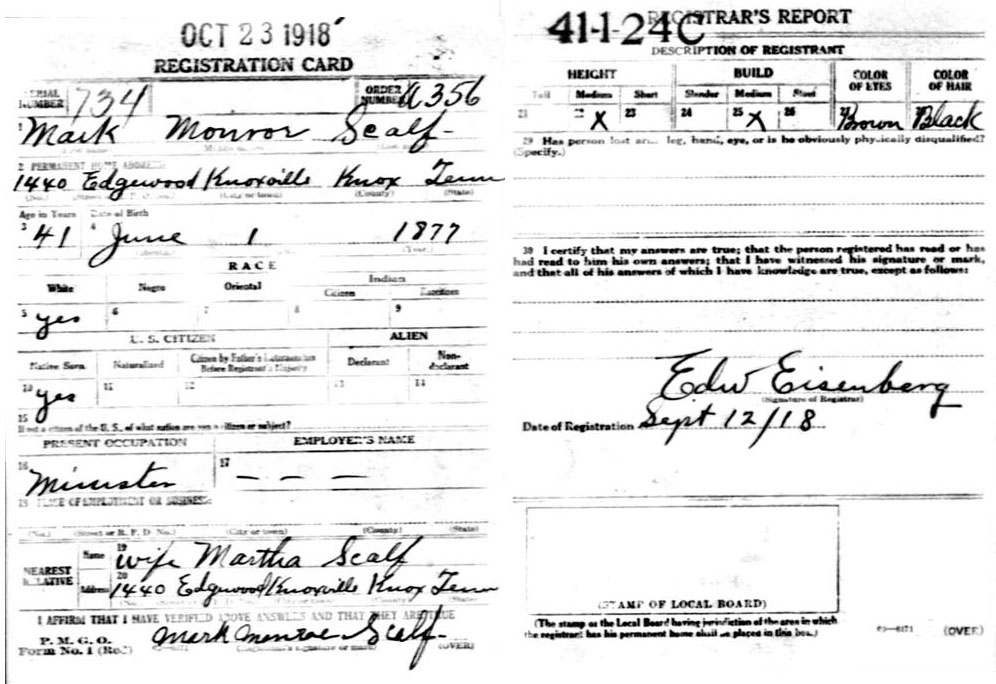 OCT 23 1918
REGISTRATION CARD
SERIAL NUMBER 734 ORDER NUMBER A356
1 Mark Monroe Scalf
2 PERMANENT HOME ADDRESS:
1440 Edgewood Knoxville Knox Tenn
(No.) (City or town) (County) (State)
Age in Years Date of Birth
3 41 4 June 1 1877
(Year)
RACE
White Negro Oriental Indian
Citizen Noncitizen
5 yes 6 7 8 9
U. S. CITIZEN ALIEN
Native Born Naturalized Citizen by Father's Naturalization Before Registrant's Majority Declarant Non-declarant
10 yes 11 12 13 14
15 If not a citizen of the U. S., of what nation are you a citizen or subject?
PRESENT OCCUPATION EMPLOYER'S NAME
16 Minister 17 — — —
18 PLACE OF EMPLOYMENT OR BUSINESS:
(No.) (Street or R. F. D. No.) (City or town) (County) (State)
NEAREST RELATIVE Name 19 wife Martha Scalf
Address 20 1440 Edgewood Knoxville Knox Tenn
I AFFIRM THAT I HAVE VERIFIED ABOVE ANSWERS AND THAT THEY ARE TRUE
P. M. G. O.
Form No. 1 (Red) Mark Monroe Scalf
(Registrant's signature or mark) (OVER)
41-1-24C REGISTRAR'S REPORT
DESCRIPTION OF REGISTRANT
HEIGHT BUILD COLOR OF EYES COLOR OF HAIR
Tall Medium Short Slender Medium Stout
21 22 X 23 24 25 X 26 27 Brown 28 Black
29 Has person lost arm, leg, hand, eye, or is he obviously physically disqualified?
(Specify.)
30 I certify that my answers are true; that the person registered has read or has
had read to him his own answers; that I have witnessed his signature or mark,
and that all of his answers of which I have knowledge are true, except as follows:
Edw Eisenberg
(Signature of Registrar)
Date of Registration Sept 12/18
(STAMP OF LOCAL BOARD)
(The stamp of the Local Board having jurisdiction of the area in which
the registrant has his permanent home shall be placed in this box.)
(OVER)